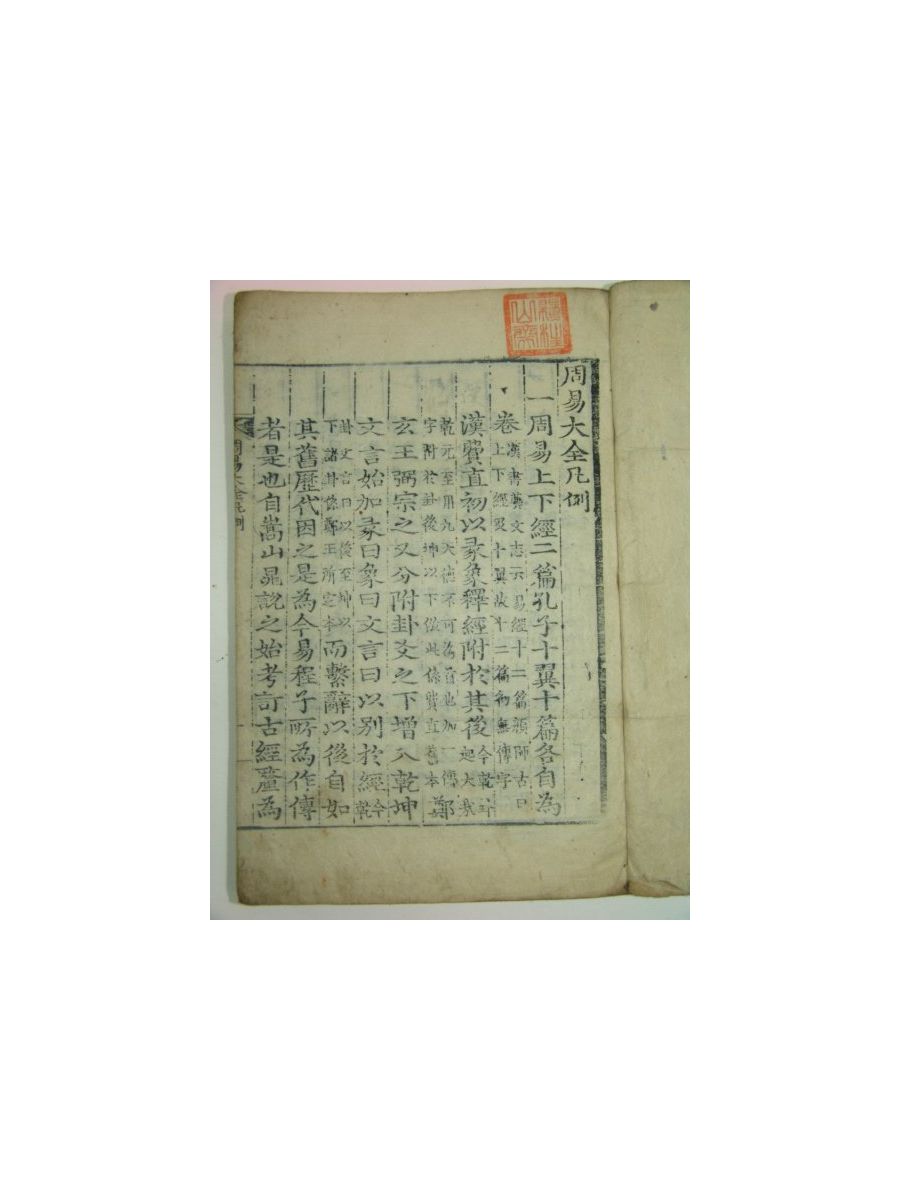 周易大全凡例
一周易上下經二篇孔子十翼十篇各自為
卷漢書藝文志云易經十二篇顏師古曰
上下經及十翼故十二篇初無傳字
漢費直初以彖象釋經附於其後今乾卦
起大哉
乾元至用九天德不可為首也加一傳
字附於卦後坤以下倣此係費直舊本鄭
玄王弼宗之又分附卦爻之下增入乾坤
文言始加彖曰象曰文言曰以別於經今乾
卦文言曰以後至坤以
下諸卦係鄭王所定本而繫辭以後自如
其舊歷代因之是為今易程子所為作傳
者是也自嵩山晁說之始考訂古經釐為
周易大全凡例